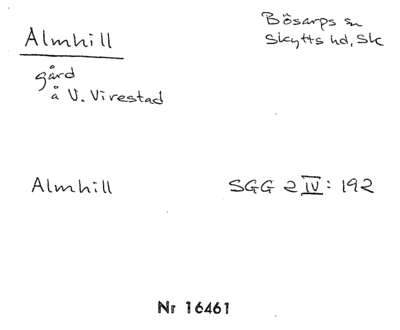 Almhill
Bösarps sn
Skytts hd, Sk
gård
å V. Virestad
Almhill
SGG 2 IV: 192
Nr 16461